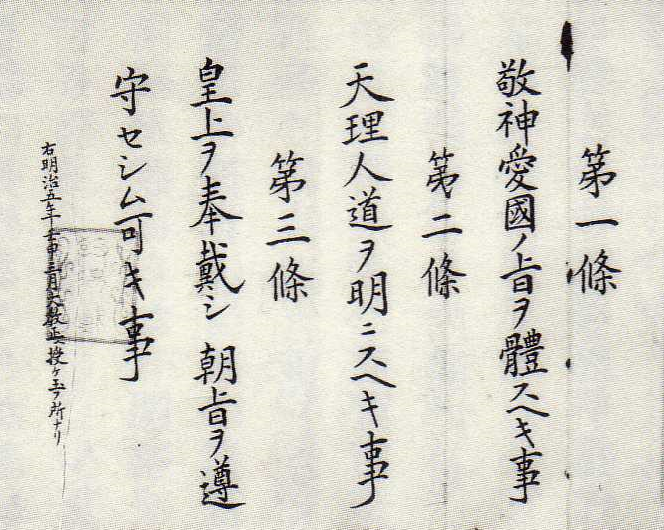 第一條
敬神愛國ノ旨ヲ體スヘキ事
第二條
天理人道ヲ明ニスヘキ事
第三條
皇上ヲ奉戴シ 朝旨ヲ遵
守セシム可キ事
右明治五年壬申三月大教正授ケ玉フ所ナリ